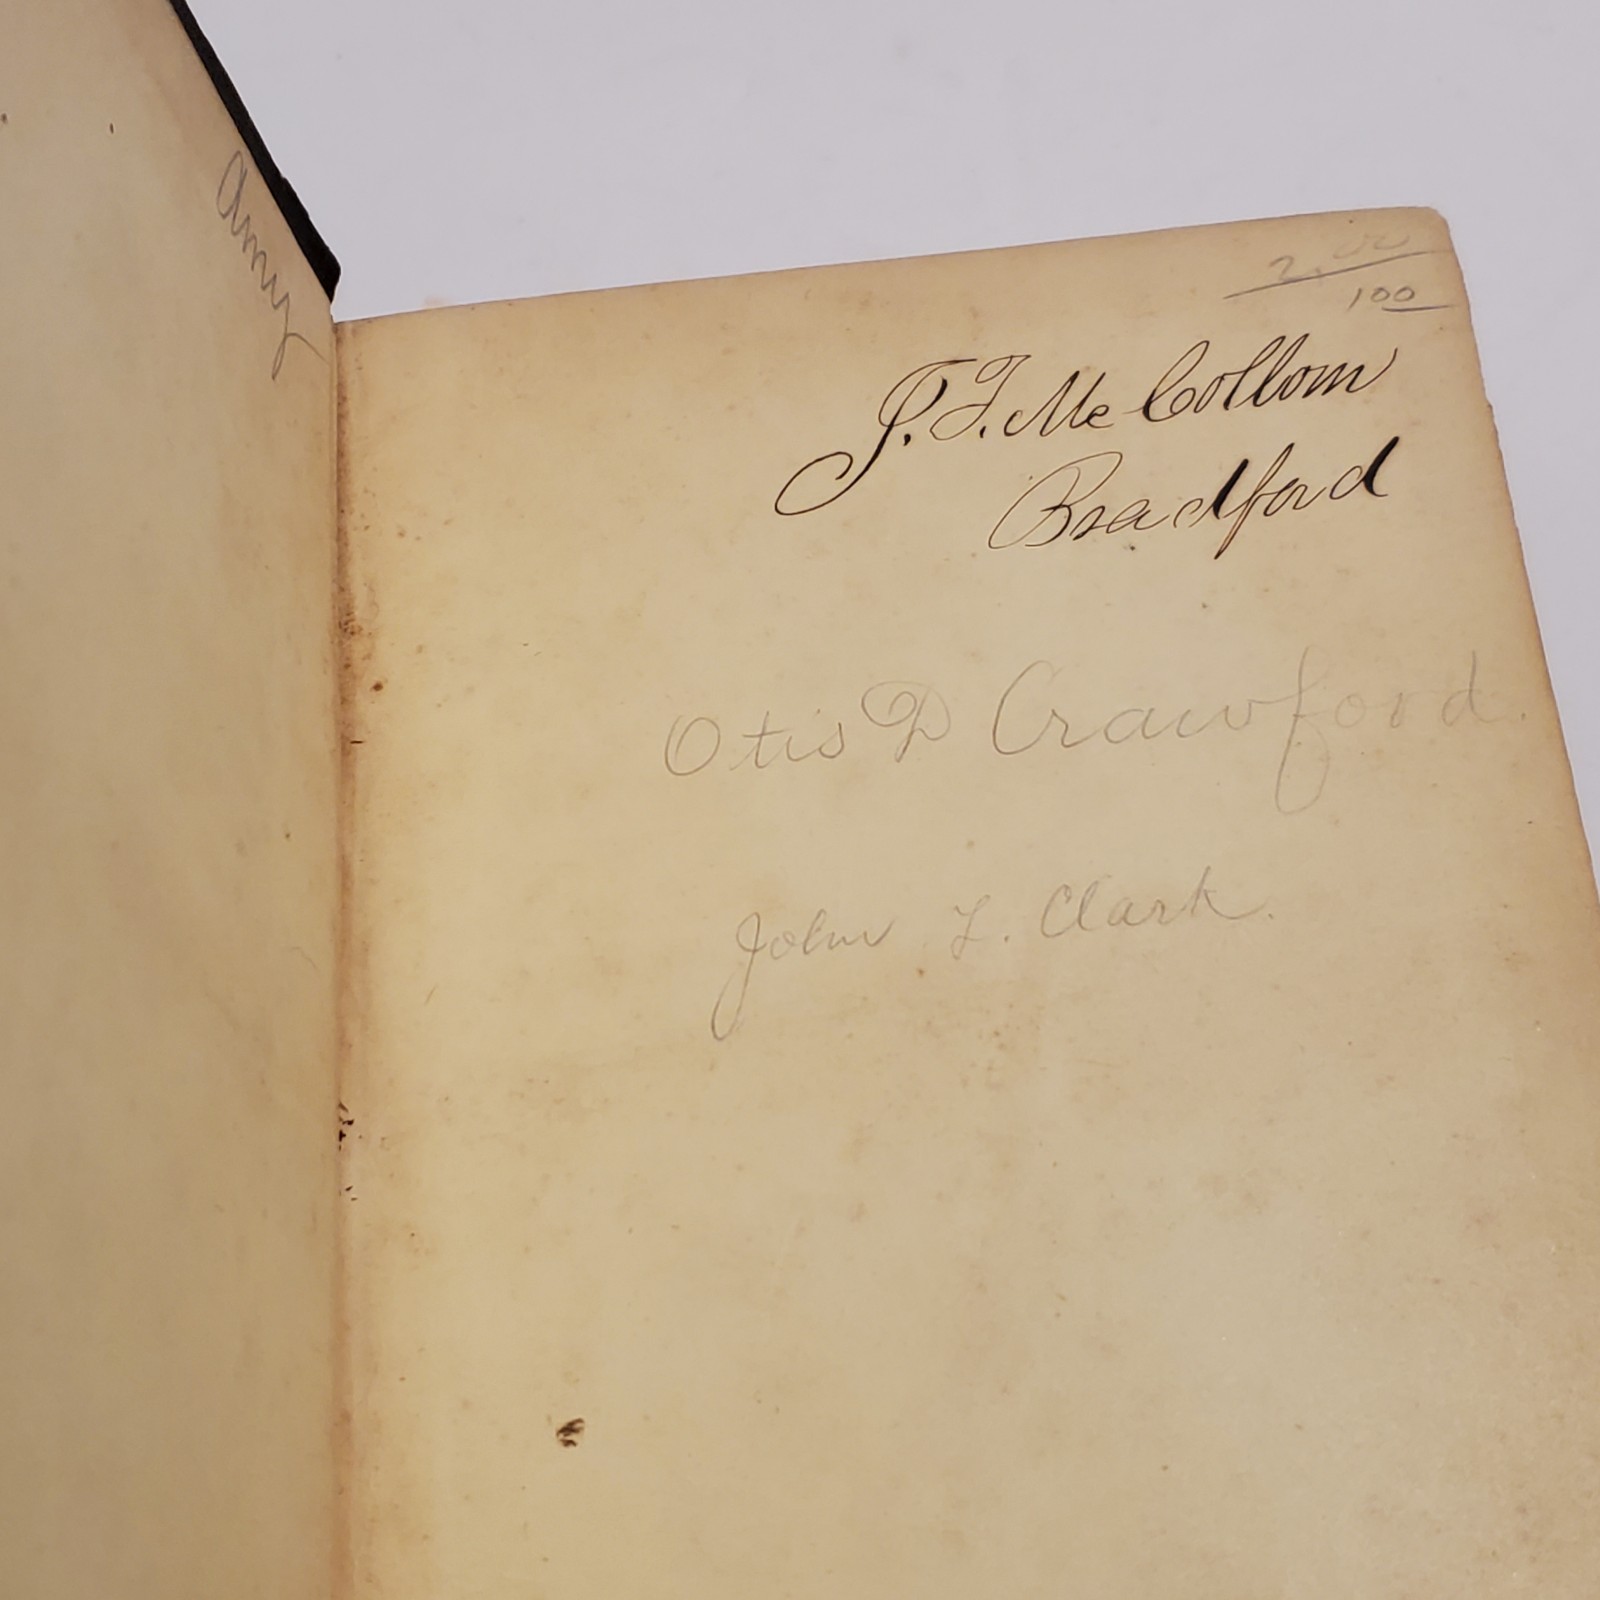 Amy
2.00
100
J. F. Mc Collom
Bradford
Otis D Crawford.
John L. Clark.